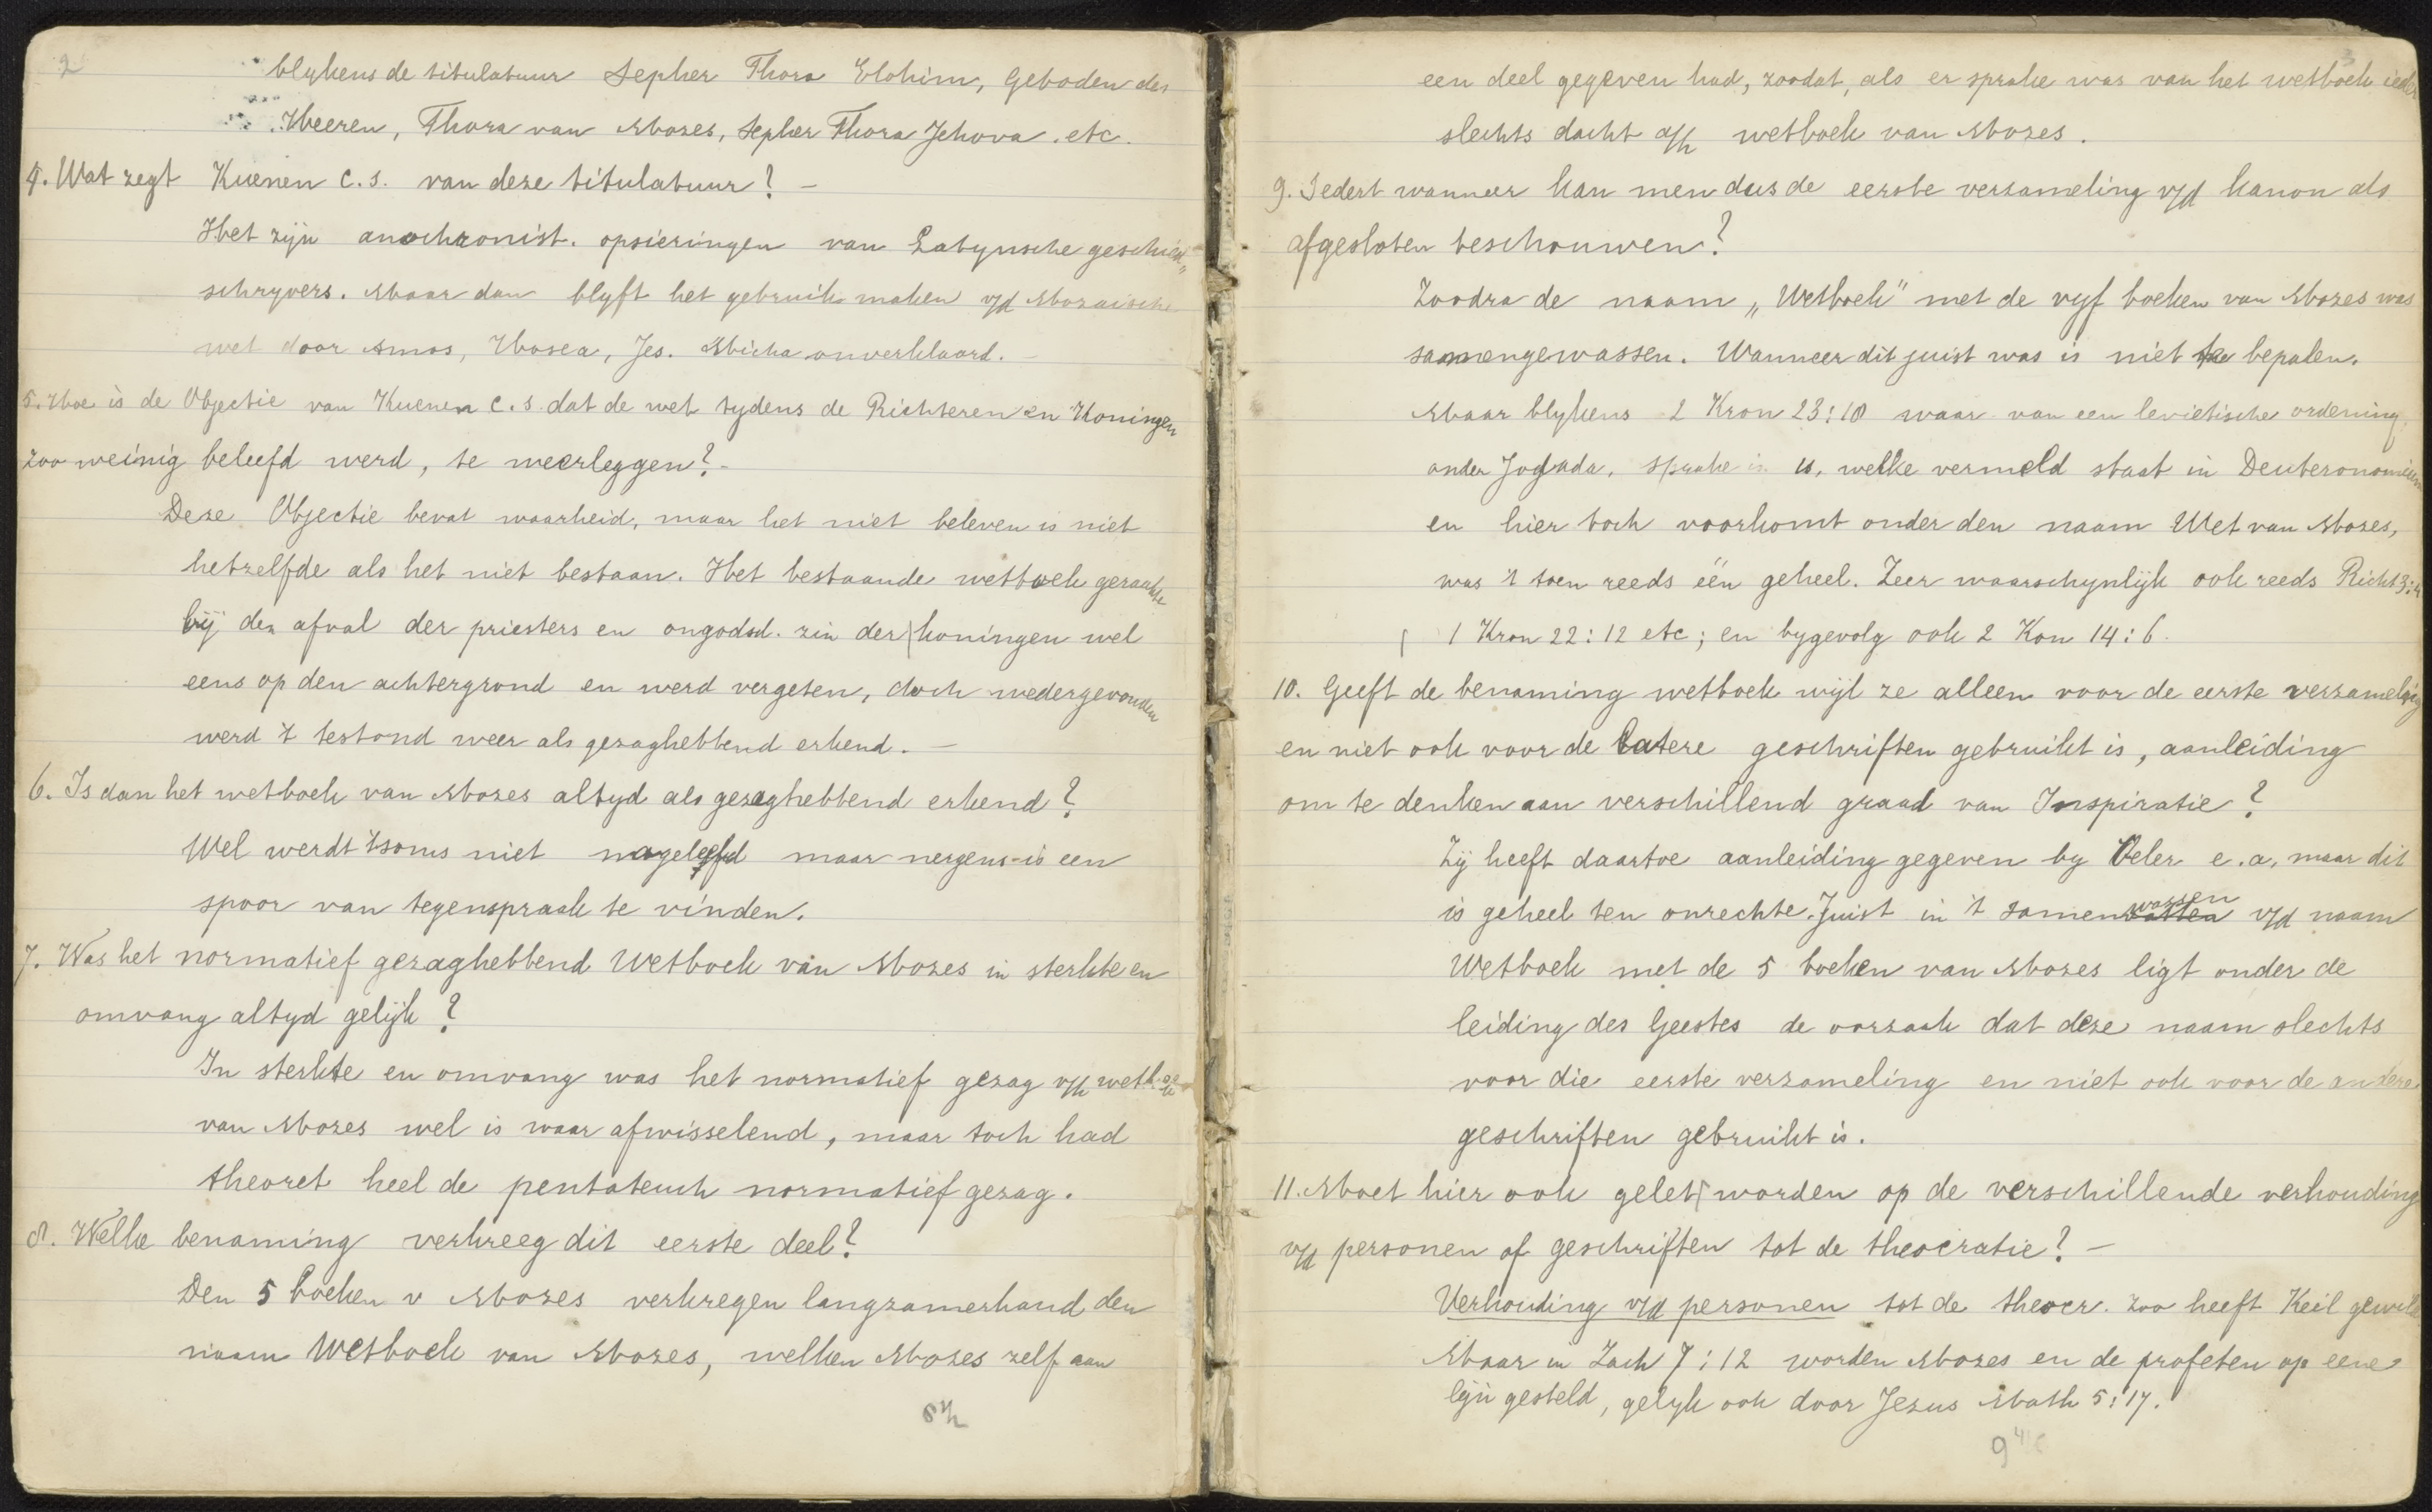 2
blykens de titulatuur Sepher Thora Elohim, Geboden des
Heeren, Thora van Mozes, Sepher Thora Jehova. etc.
4. Wat zegt Kuenen c.s. van deze titulatuur? –
Het zijn anachronist. opsieringen van Latynsche geschied„
schryvers. Maar dan blyft het gebruik maken v/d Mozaische
wet door Amos, Hosea, Jes. Micha onverklaard. –
5. Hoe is de Objectie van Kuenen c.s. dat de wet tydens de Richteren en Koningen
zoo weinig beleefd werd, te weerleggen? –
Deze Objectie bevat waarheid, maar het niet beleven is niet
hetzelfde als het niet bestaan. Het bestaande wetboek geraakte
bij den afval der priesters en ongodsd. zin der koningen wel
eens op den achtergrond en werd vergeten, doch wedergevonden
werd 't testond weer als gezaghebbend erkend. –
6. Is dan het wetboek van Mozes altyd als gezaghebbend erkend?
Wel werdt 'tsoms niet nageleefd maar nergens is een
spoor van tegenspraak te vinden.
7. Was het normatief gezaghebbend Wetboek van Mozes in sterkte en
omvang altyd gelijk?
In sterkte en omvang was het normatief gezag v/h wetboek
van Mozes wel is waar afwisselend, maar toch had
theoret heel de pentateuch normatief gezag.
8. Welke benaming verkreeg dit eerste deel?
Den 5 boeken v Mozes verkregen langzamerhand den
naam Wetboek van Mozes, welken Mozes zelf aan
een deel gegeven had, zoodat, als er sprake was van het wetboek ieder
slechts dacht a/h wetboek van Mozes.
9. Sedert wanneer kan men dus de eerste verzameling v/d kanon als
afgesloten beschouwen?
Zoodra de naam „Wetboek" met de vyf boeken van Mozes was
samengewassen. Wanneer dit juist was is niet te bepalen.
Maar blykens 2 Kron 23:18 waar van een levietische ordening
onder Jojada, sprake is is, welke vermeld staat in Deuteronomium
en hier toch voorkomt onder den naam Wet van Mozes,
was 't toen reeds één geheel. Zeer waarschynlijk ook reeds Richt 3:4
1 Kron 22:12 etc; en bygevolg ook 2 Kon 14:6.
10. Geeft de benaming wetboek wijl ze alleen voor de eerste verzameling
en niet ook voor de latere geschriften gebruikt is, aanleiding
om te denken aan verschillend graad van Inspiratie?
Zij heeft daartoe aanleiding gegeven by Oeler e.a. maar dit
is geheel ten onrechte. Juist in 't samenwassen v/d naam
Wetboek met de 5 boeken van Mozes ligt onder de
leiding des Geestes de oorzaak dat deze naam slechts
voor die eerste verzameling en niet ook voor de andere
geschriften gebruikt is.
11. Moet hier ook gelet worden op de verschillende verhouding
v/d personen of geschriften tot de theocratie? –
Verhouding v/d personen tot de theocr. zoo heeft Keil gewild
Maar in Zach 7:12 worden Mozes en de profeten op eene
lijn gesteld, gelyk ook door Jezus Math 5:17.